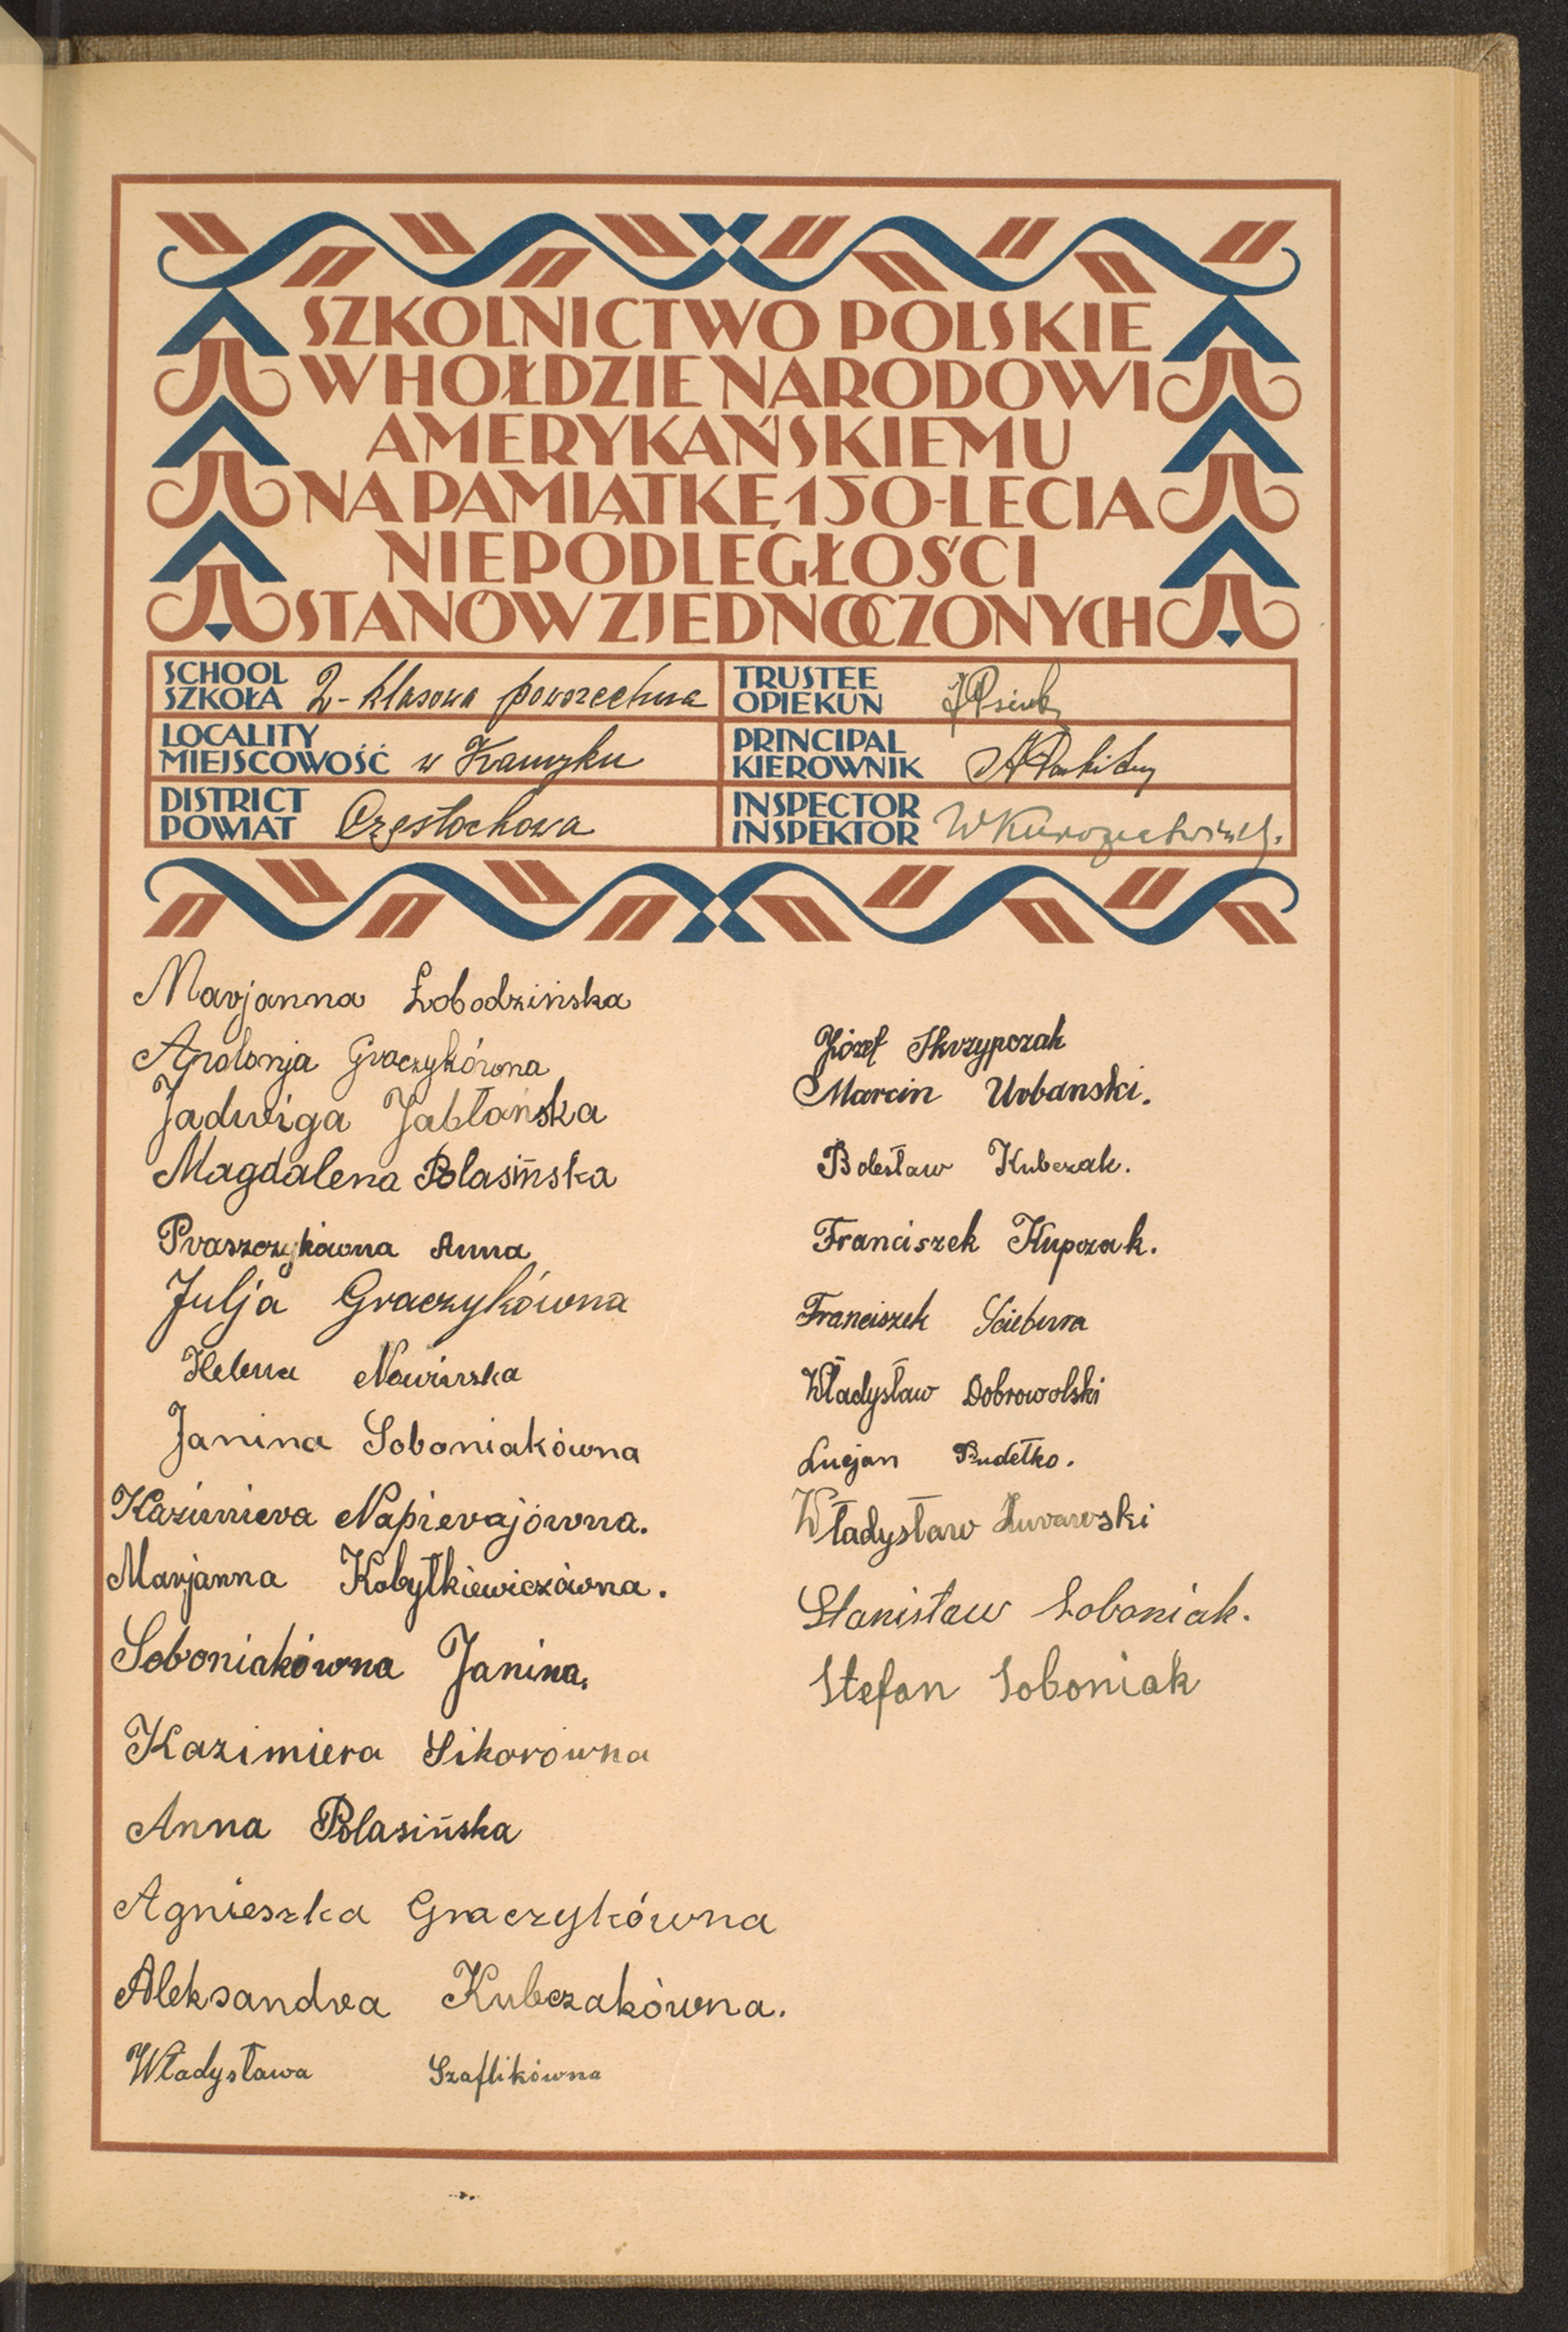 SZKOLNICTWO POLSKIE
W HOŁDZIE NARODOWI
AMERYKAŃSKIEMU
NA PAMIĄTKĘ 150-LECIA
NIEPODLEGŁOŚCI
STANÓW ZJEDNOCZONYCH
SCHOOL
SZKOŁA 2-klasowa powszechna
LOCALITY
MIEJSCOWOŚĆ w Kamyku
DISTRICT
POWIAT Częstochowa
TRUSTEE
OPIEKUN
PRINCIPAL
KIEROWNIK
INSPECTOR
INSPEKTOR
Marjanna Łobodzińska
Apolonja Graczykówna
Jadwiga Jabłońska
Magdalena Polasińska
Praszczykówna Anna
Julja Graczykówna
Helena Nowińska
Janina Soboniakówna
Kazimiera Napierajówna.
Marjanna Kobyłkiewiczówna.
Soboniakówna Janina.
Kazimiera Sikorówna
Anna Polasińska
Agnieszka Graczykówna
Aleksandra Kubczakówna.
Władysława Szaflikówna
Józef Skrzypczak
Marcin Urbanski.
Bolesław Kubczak.
Franciszek Kupczak.
Franciszek Ściebura
Władysław Dobrowolski
Lucjan Pudełko.
Władysław Żurawski
Stanisław Soboniak.
Stefan Soboniak